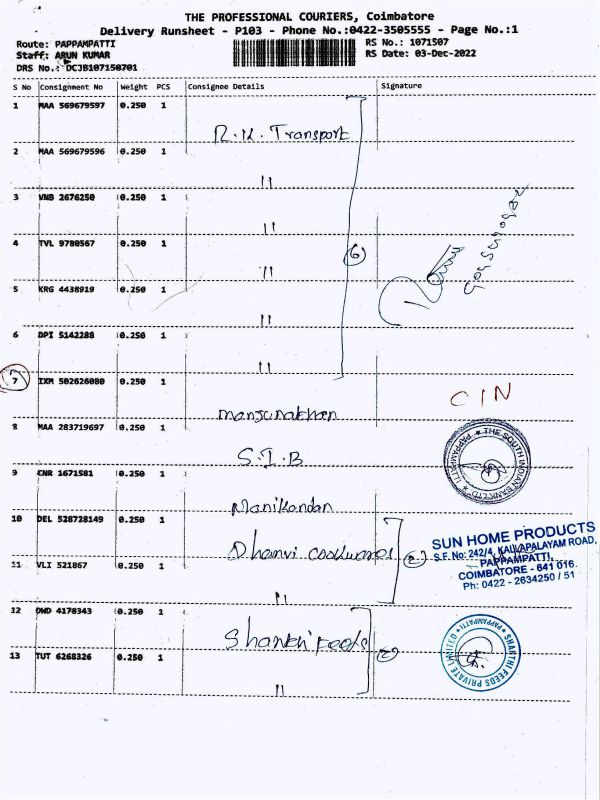 THE PROFESSIONAL COURIERS, Coimbatore
Delivery Runsheet - P103 - Phone No.:0422-3505555 - Page No.:1
Route: PAPPAMPATTI
RS No.: 1071507
Staff: ARUN KUMAR
RS Date: 03-Dec-2022
DRS No.: DCJB107150701
S No Consignment No Weight PCS Consignee Details Signature
1 MAA 569679597 0.250 1
R.K. Transport
2 MAA 569679596 0.250 1
"
3 VNB 2676250 0.250 1
"
4 TVL 9780567 0.250 1
"
6
5 KRG 4438919 0.250 1
"
6 DPI 5142288 0.250 1
"
7 IXM 502626080 0.250 1
CIN
8 MAA 283719697 0.250 1
S.I.B
THE SOUTH INDIAN BANK LTD. PAPPAMPATTI
9 CNR 1671581 0.250 1
Manikandan
10 DEL 528728149 0.250 1
Dhanvi cookwares
2
SUN HOME PRODUCTS
S.F. No: 242/4, KALLAPALAYAM ROAD,
PAPPAMPATTI,
COIMBATORE - 641 016.
Ph: 0422 - 2634250 / 51
11 VLI 521867 0.250 1
"
12 DWD 4178343 0.250 1
Shanthi Feeds
2
SHANTHI FEEDS PRIVATE LIMITED PAPPAMPATTI
13 TUT 6268326 0.250 1
"